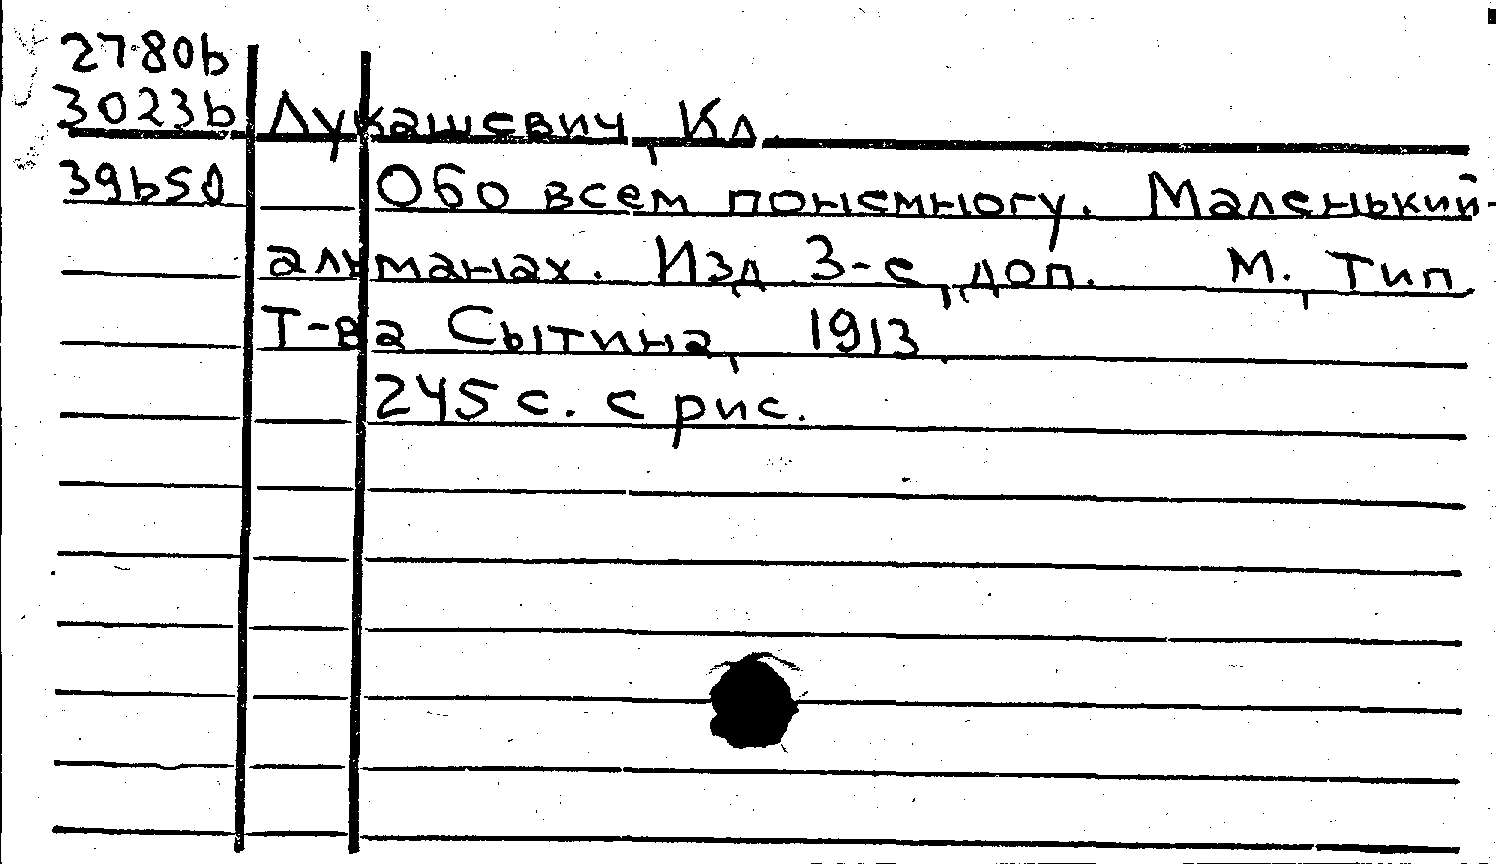 2780b
3023b Лукашевич, Кл.
39b50 Обо всем понемногу. Маленький
альманах. Изд. 3-е, доп. М., Тип.
Т-ва Сытина, 1913.
245 с. с рис.